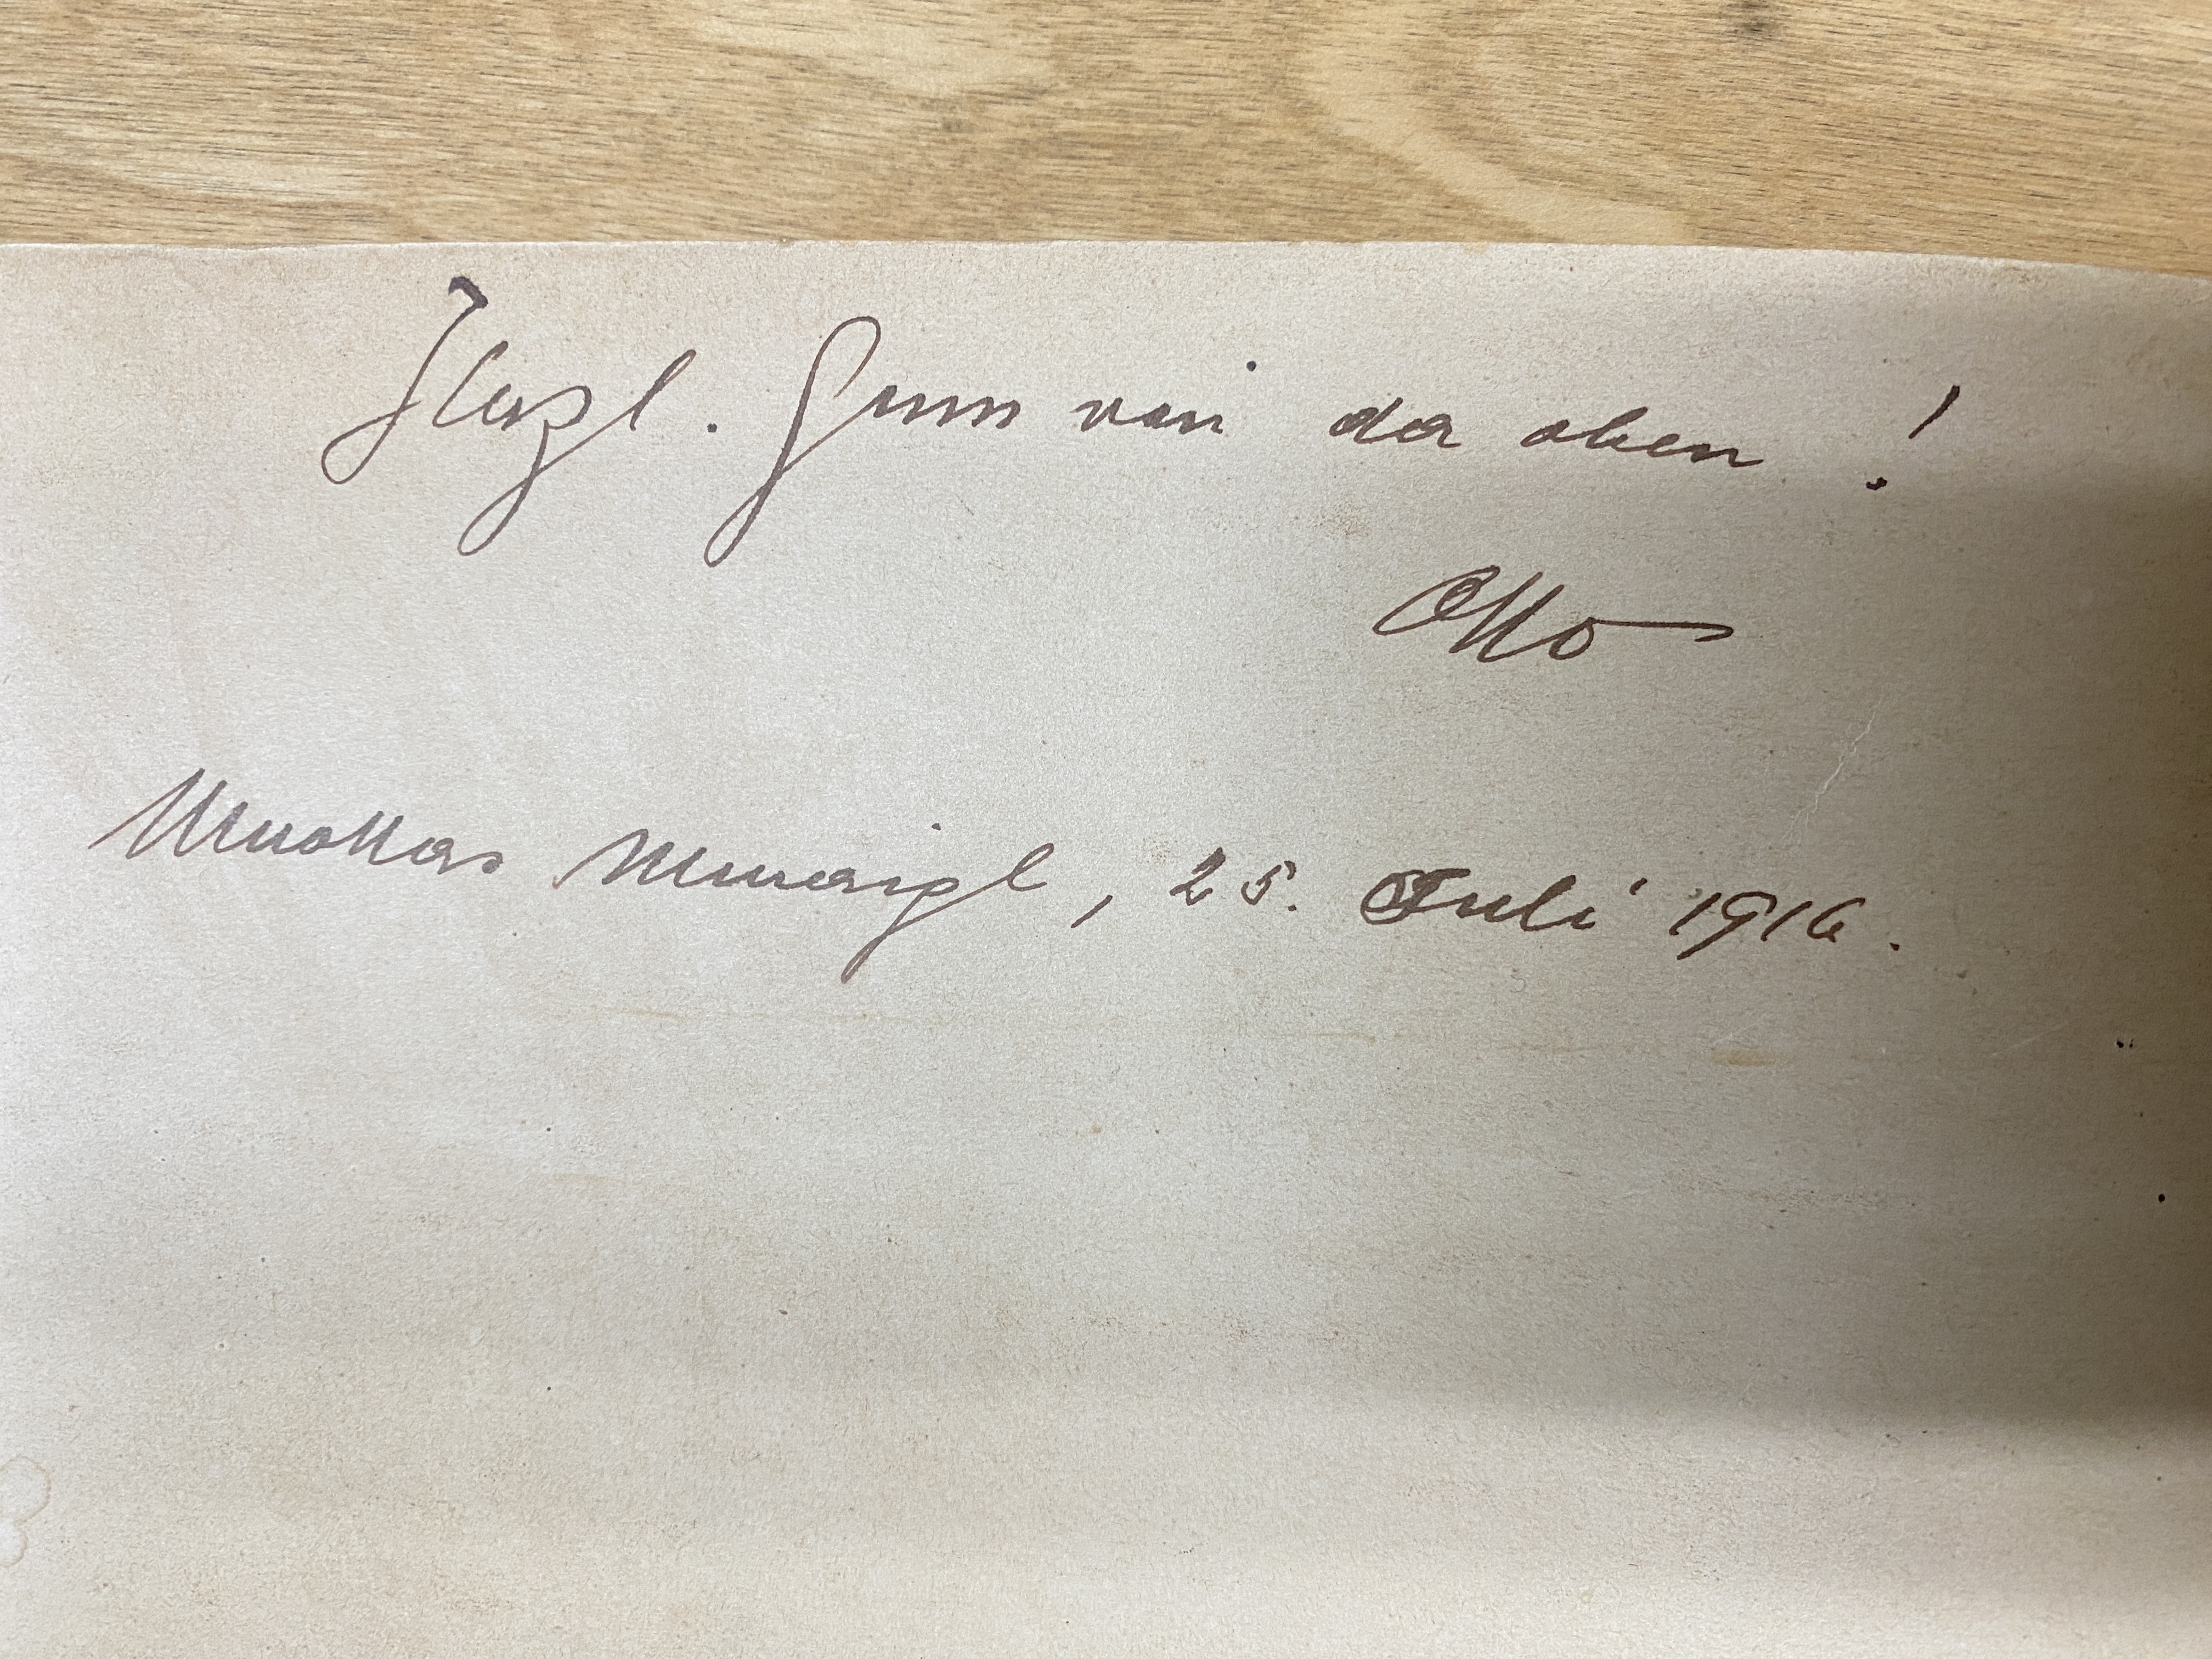 Herzl. Gruss von da oben!
Otto
Muottas Muraigl, 25. Juli 1916.